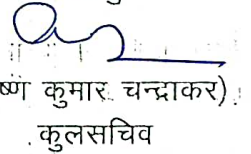 कुमार चन्द्राकर)
कुलसचिव